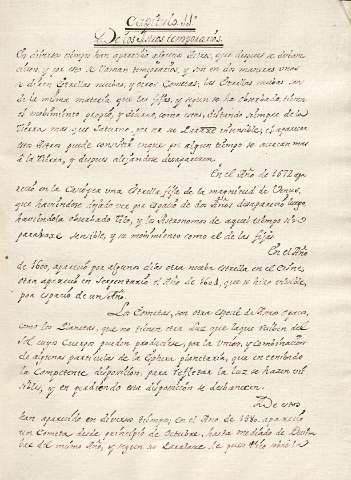 Capitulo 11º
De los Astros temporarios.
En diversos tiempos han aparecido algunos Astros, que despues se desvan
cieron, y por eso se llaman temporarios, y son en dos maneras unos
se dicen Estrellas nuebas, y otros Cometas; las Estrellas nuebas son
de la misma materia que las fijas, y segun se ha observado tienen
el movimiento propio, y distan siempre de la
Tierra mas que Saturno, por no ser sensible, el aparecer
estos Astros puede consistir en que por algun tiempo se acercan mas
á la Tierra, y despues alejandose desaparecen.
En el Año de 1572 apa
reció en la una Estrella fija de la magnitud de Venus,
que haviendose dejado ver por espacio de dos Años desapareció luego
haviendola observado Tico, y los Astronomos de aquel tiempo
sensible, y su movimiento como el de las fijas.
En el Año
de 1600, apareció por algunos dias otra nueba estrella en el Cisne,
otra apareció en Serpentario el Año de 1604, que se hizo visible,
por espacio de un Año.
Los Cometas, son otra especie de Astros opacos,
como los Planetas, que no tienen otra Luz que la que reciben del
Sol cuyo Cuerpo pueden producirse, por la Union, y Combinacion
de algunas particulas de la Esfera planetaria, que en teniendo
la Competente disposicion, para reflectar la luz se hacen vi
sibles, y en perdiendo esta disposicion se desbanecen.
De estos
han aparecido en diversos tiempos; en el Año de 1580 apareció
un Cometa desde principio de Octubre, hasta mediado de
bre del mismo Año, y segun no